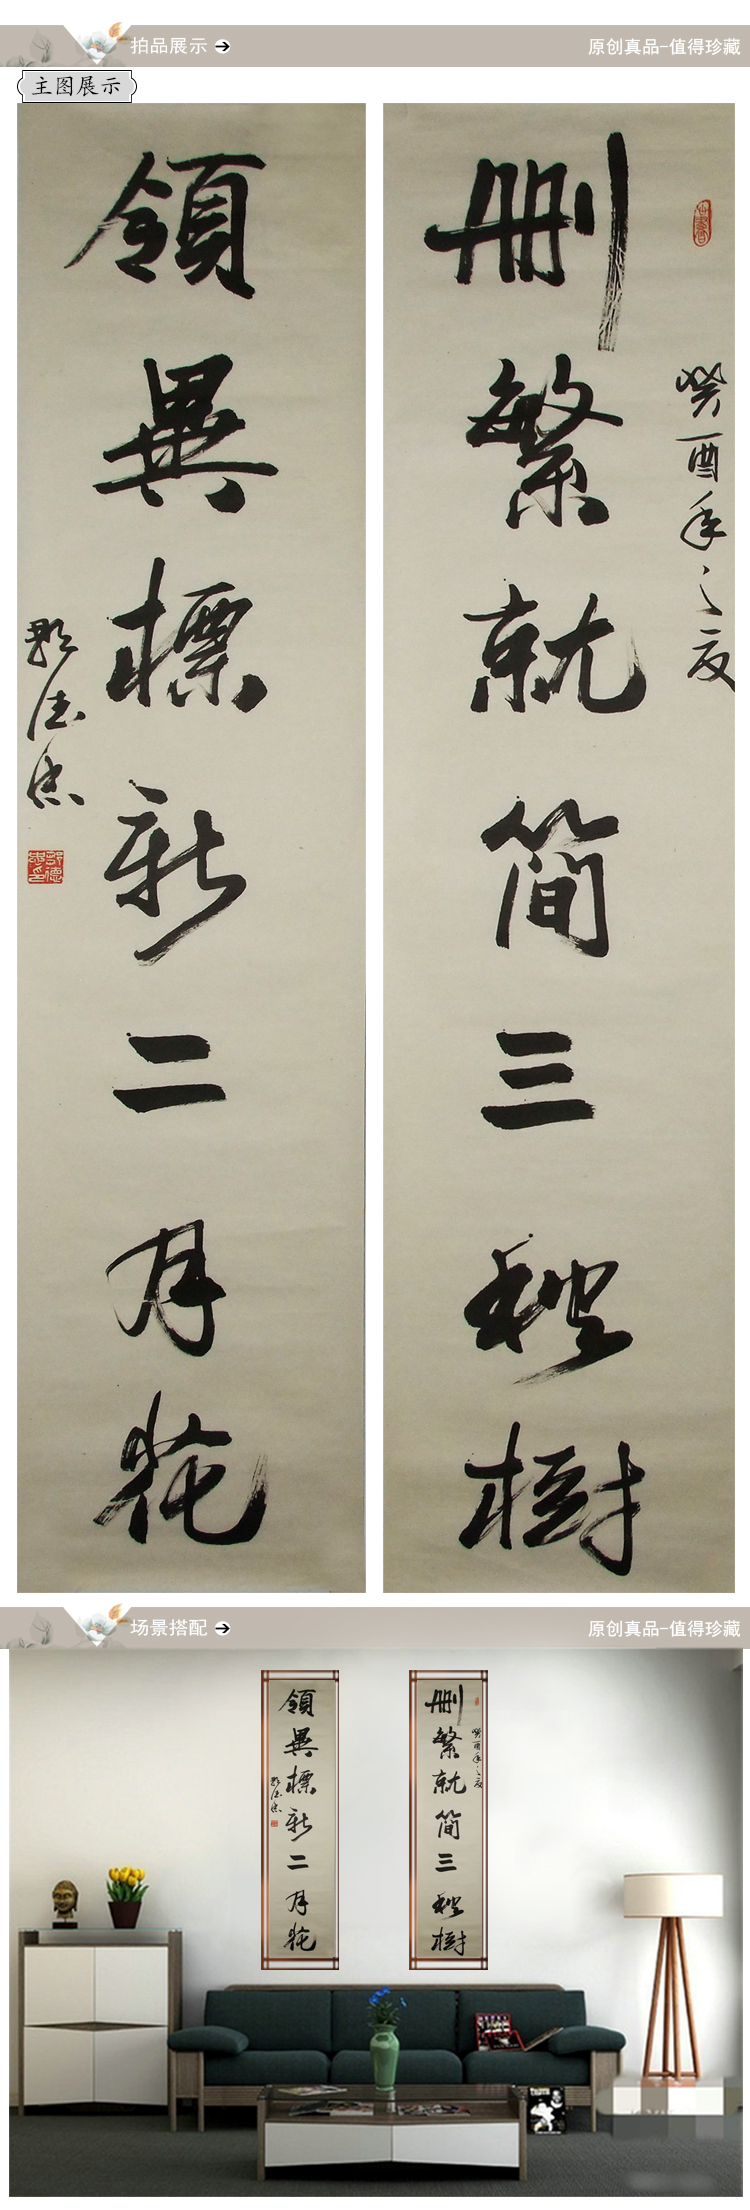 拍品展示
原创真品-值得珍藏
主图展示
刪繁就簡三秋樹
癸酉年之夏
領異標新二月花
德忠
场景搭配
原创真品-值得珍藏
領異標新二月花
刪繁就簡三秋樹
癸酉年之夏